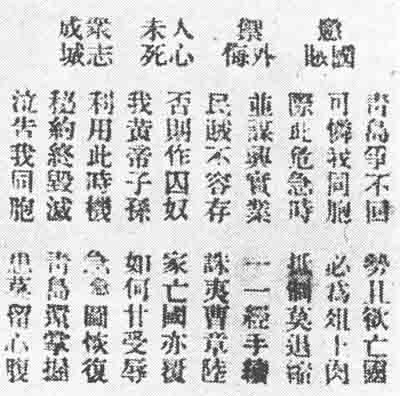 懲國賊
禦外侮
人心未死
衆志成城
青島爭不回 勢且欲亡國
可憐我同胞 必爲俎上肉
際此危急時 抵制莫退縮
並謀興實業 一一經手續
民賊不容存 誅夷曹章陸
否則作囚奴 家亡國亦覆
我黃帝子孫 如何甘受辱
利用此時機 急急圖恢復
秘約終毀滅 青島還掌握
泣告我同胞 患莫留心腹